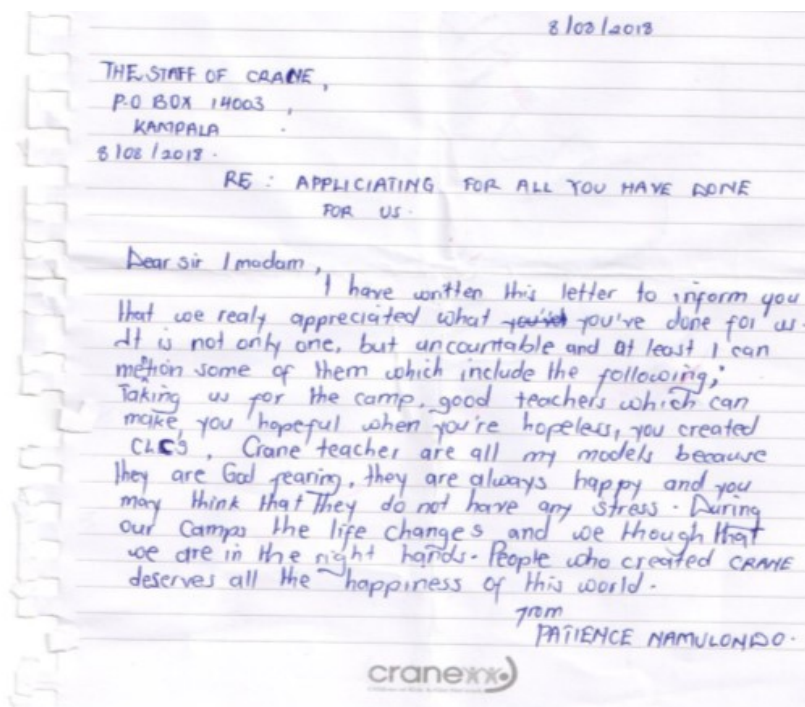 8/08/2018
THE STAFF OF CRANE,
P.O BOX 14003,
KAMPALA.
8/08/2018.
RE: APPLICIATING FOR ALL YOU HAVE DONE
FOR US.
Dear sir / madam,
I have written this letter to inform you
that we realy appreciated what you've done for us.
It is not only one, but uncountable and at least I can
mention some of them which include the following;
Taking us for the camp, good teachers which can
make you hopeful when you're hopeless, you created
CLC'S, Crane teacher are all my models because
they are God fearing, they are always happy and you
may think that They do not have any stress. During
our Camps the life changes and we though that
we are in the right hands. People who created CRANE
deserves all the happiness of this world.
from
PATIENCE NAMULONDO.
crane